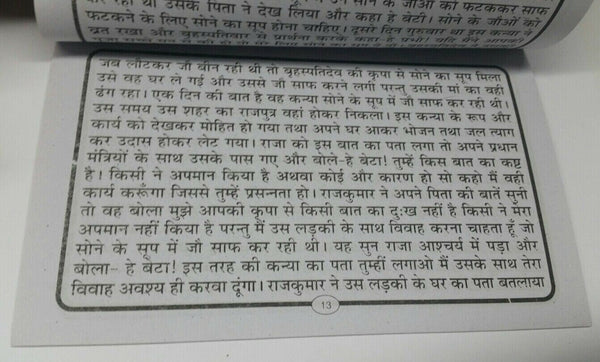 कर रही थी उसके पिता ने देख लिया और कहा हे बेटी। सोने के जौओं को
फटकने के लिए सोने का सूप होना चाहिए। दूसरे दिन गुरुवार था इस कन्या ने
व्रत रखा और बृहस्पतिवार से प्रार्थना करके कहा
जब लौटकर जौ बीन रही थी तो वृहस्पतिदेव की कृपा से सोने का सूप मिला
उसे वह घर ले गई और उससे जौ साफ करने लगी परन्तु उसकी मां का वही
ढंग रहा। एक दिन की बात है वह कन्या सोने के सूप में जौ साफ कर रही थी।
उस समय उस शहर का राजपुत्र वहां होकर निकला। इस कन्या के रूप और
कार्य को देखकर मोहित हो गया तथा अपने घर आकर भोजन तथा जल त्याग
कर उदास होकर लेट गया। राजा को इस बात का पता लगा तो अपने प्रधान
मंत्रियों के साथ उसके पास गए और बोले-हे बेटा! तुम्हें किस बात का कष्ट
है। किसी ने अपमान किया है अथवा कोई और कारण हो सो कहो मैं वही
कार्य करूँगा जिससे तुम्हें प्रसन्नता हो। राजकुमार ने अपने पिता की बातें सुनी
तो वह बोला मुझे आपकी कृपा से किसी बात का दुःख नहीं है किसी ने मेरा
अपमान नहीं किया है परन्तु मैं उस लड़की के साथ विवाह करना चाहता हूँ जो
सोने के सूप में जौ साफ कर रही थी। यह सुन राजा आश्चर्य में पड़ा और
बोला- हे बेटा! इस तरह की कन्या का पता तुम्हीं लगाओ मैं उसके साथ तेरा
विवाह अवश्य ही करवा दूंगा। राजकुमार ने उस लड़की के घर का पता बतलाया
13